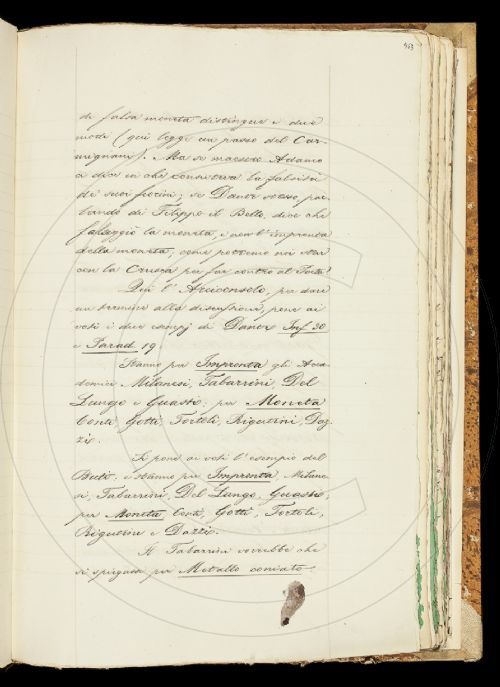 463
di falsa moneta distingue i due
modi (qui legge un passo del Car-
mignani). Ma se maestro Adamo
ci dice in che consisteva la falsità
de' suoi fiorini; se Dante stesso, par-
lando di Filippo il Bello, dice che
falseggiò la moneta, e non l'impronta
della moneta, come potremo noi star
con la Crusca per far contro al Poeta?
Qui l'Arciconsolo, per dare
un termine alla discussione, pone ai
voti i due esempj di Dante Inf. 30
e Parad. 19.
Stanno per Impronta gli Acca-
demici Milanesi, Tabarrini, Del
Lungo e Guasti; per Moneta
Conti, Gotti, Tortoli, Rigutini, Daz-
zi.
Si pone ai voti l'esempio del
Buti, e stanno per Impronta, Milane-
si, Tabarrini, Del Lungo, Guasti;
per Moneta Conti, Gotti, Tortoli,
Rigutini e Dazzi.
Il Tabarrini vorrebbe che
si spiegasse per Metallo coniato